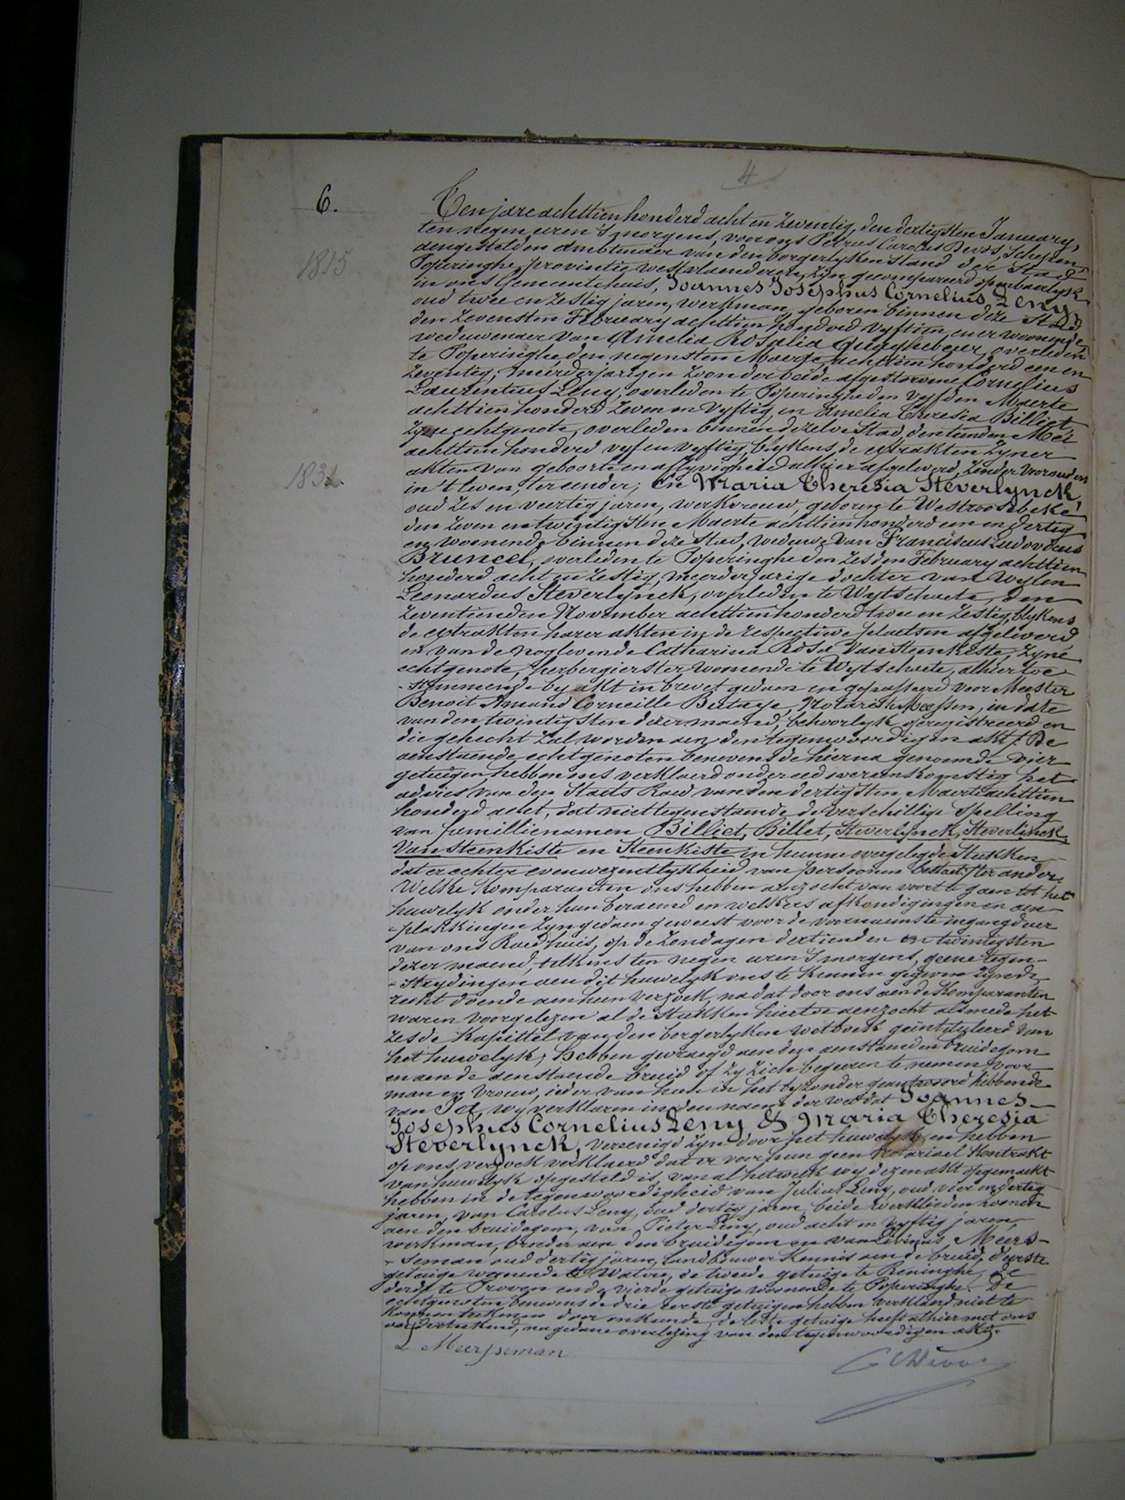 4
6.
Ten jare achttien honderd acht en zeventig, den dertigsten January,
ten negen uren 's morgens, voor ons Petrus Carolus Devos, Schepen,
aengestelden Ambtenaer van den borgerlyken stand der Stad
Poperinghe, provintie westvlaenderen, zyn gecompareerd openbaerlyk
1815
in ons Gemeentehuis, Joannes Josephus Cornelius Leny,
oud twee en zestig jaren, werkman, geboren binnen deze Stad
den zevensten February achttien honderd vyftien, en er woonende,
weduwenaer van Amelia Rosalia Gheyhebeur, overleden
te Poperinghe den negensten Maerte achttien honderd een en
zeventig; meerderjarigen zoon der beide afgestorvene Cornelius
Laurentius Leny, overleden te Poperinghe den vyfden Maerte
achttien honderd zeven en vyftig, en Amelia Theresia Billiet,
zyne echtgenote, overleden binnen dezelve stad, den tienden Mei
achttien honderd vyf en vyftig, blykens de extrakten zyner
akten van geboorte en aflyvigheid alhier afgeleverd, zonder voorouders
1831.
in 't leven, ter eender; En Maria Theresia Steverlynck,
oud zes en veertig jaren, werkvrouw, geboren te Westroosebeke
den zeven en twintigsten Maerte achttien honderd een en dertig
en woonende binnen deze stad, weduwe van Franciscus Ludovicus
Bruneel, overleden te Poperinghe den zesden February achttien
honderd acht en zestig, meerderjarige dochter van wylen
Leonardus Steverlynck, overleden te Wytschaete, den
zeventienden November achttien honderd twee en zestig, blykens
de extrakten harer akten in de respective plaetsen afgeleverd
en van de nog levende Catharina Rosa Vansteenkiste, zyne
echtgenote, herbergierster, woonende te Wytschaete, alhier toe-
-stemmende by akt in brevet gedaen en gepasseerd voor Meester
Benoit Amand Corneille Butaye, Notaris te Meessen, in date
van den twintigsten dezer maend, behoorlyk geregistreerd en
die gehecht zal worden aen den tegenwoordigen akt. De
aenstaende echtgenoten benevens de hierna genoemde vier
getuigen hebben ons verklaerd onder eed overeenkomstig het
advies van den Staets Raed van den dertigsten Maerte achttien
honderd acht, dat niettegenstaende de verschillige spelling
van familienamen Billiet, Billet, Steverlynck, Steverlijnck,
Vansteenkiste en Steenkiste in hunne overgelegde stukken
dat er echter evenwezentlykheid van persoonen bestaet, ter ander.
Welke Komparanten ons hebben aenzocht van voort te gaen tot het
huwelyk onder hun beraemd en welkers afkondigingen en aen-
-plakkingen zyn gedaen geweest voor de voornaemste ingangdeur
van ons Raedhuis, op de zondagen dertienden en twintigsten
dezer maend, telkens ten negen uren 's morgens, geene tegen-
-strydingen aen dit huwelyk ons te kennen gegeven zynde,
recht doende aen hun verzoek, na dat door ons aen de Komparanten
waren voorgelezen al de stukken hiertoe aenzocht alsmede het
zesde Kapittel van den borgerlyken wetboek geintituleerd van
het huwelyk; Hebben gevraegd aen den aenstaenden bruidegom
en aen de aenstaende bruid of zy zich begeeren te nemen voor
man en vrouw, ieder van hun in het byzonder geantwoord hebbende
van Ja, wy verklaren in den naem der wet dat Joannes
Josephus Cornelius Leny & Maria Theresia
Steverlynck, vereenigd zyn door het huwelyk en hebben
op ons verzoek verklaerd dat er voor hun geen Notariael Kontrakt
van huwelyk opgesteld is, van al hetwelk wy dezen akt opgemaekt
hebben in de tegenwoordigheid van Julius Leny, oud vier en dertig
jaren, van Carolus Leny, oud dertig jaren, beide werklieden zonen
aen den bruidegom, van Pieter Leny, oud acht en vyftig jaren,
werkman, broeder aen den bruidegom en van Livinus Meers-
-seman oud dertig jaren, landbouwer kennis aen de bruid, d'eerste
getuige woonende te Watou, de tweede getuige te Reninghe, de
derde te Proven en de vierde getuige woonende te Poperinghe. De
echtgenoten benevens de drie eerste getuigen hebben verklaerd niet te
konnen teekenen door onkunde, de leste getuige heeft alhier met ons
onderteekend, na gedane overlezing van den tegenwoordigen akt.
L Meersseman